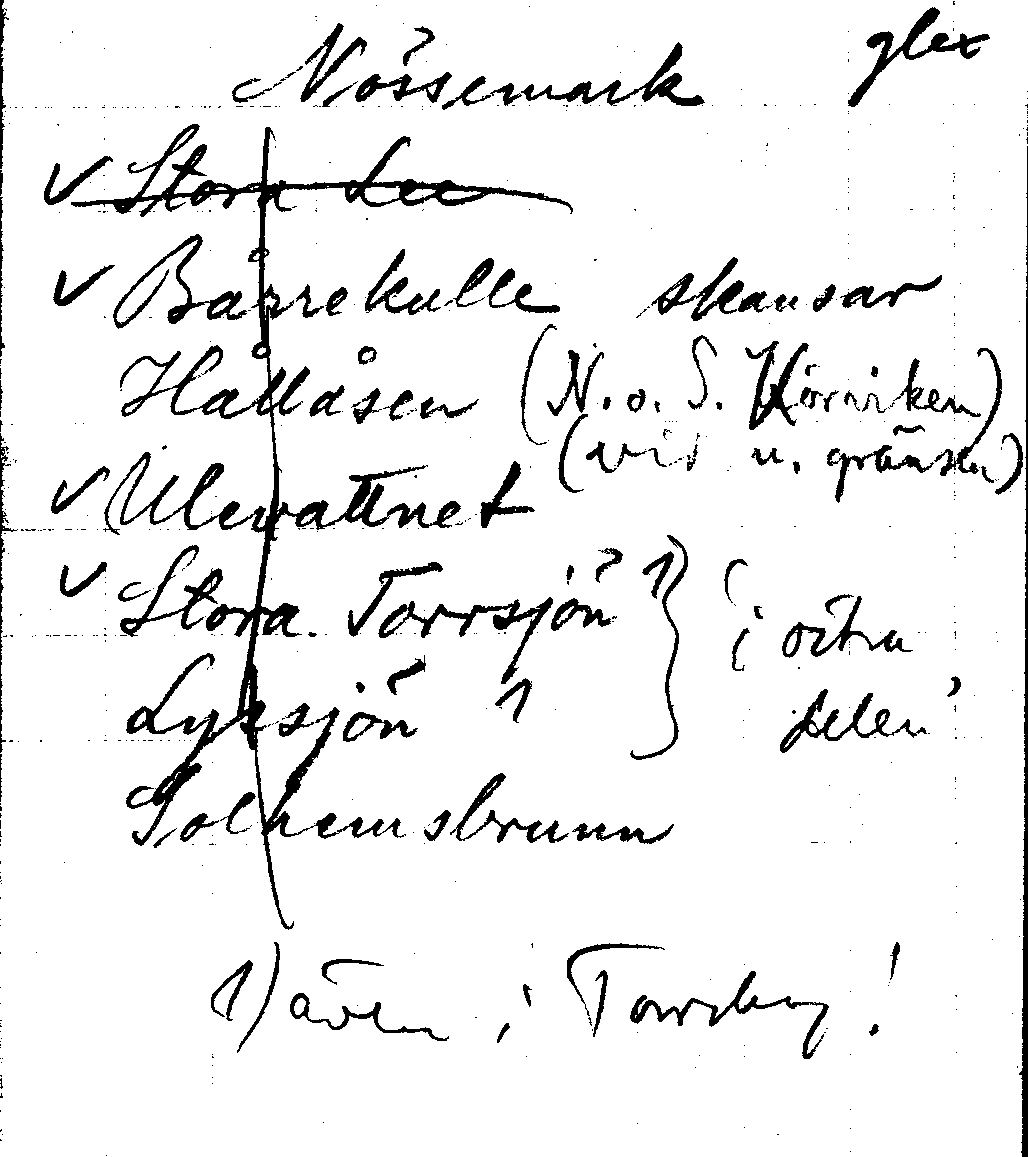 Nössemark glex
Stora Lee
Bårrekulle skansar
Hållåsen (N. o. S. Hörniken)
(vid n. gränsen)
Ulevattnet
Stora Torrsjön 1) (i östra
Lyssjön 1 delen
Solhemsbrunn
1) även i Torrskog!